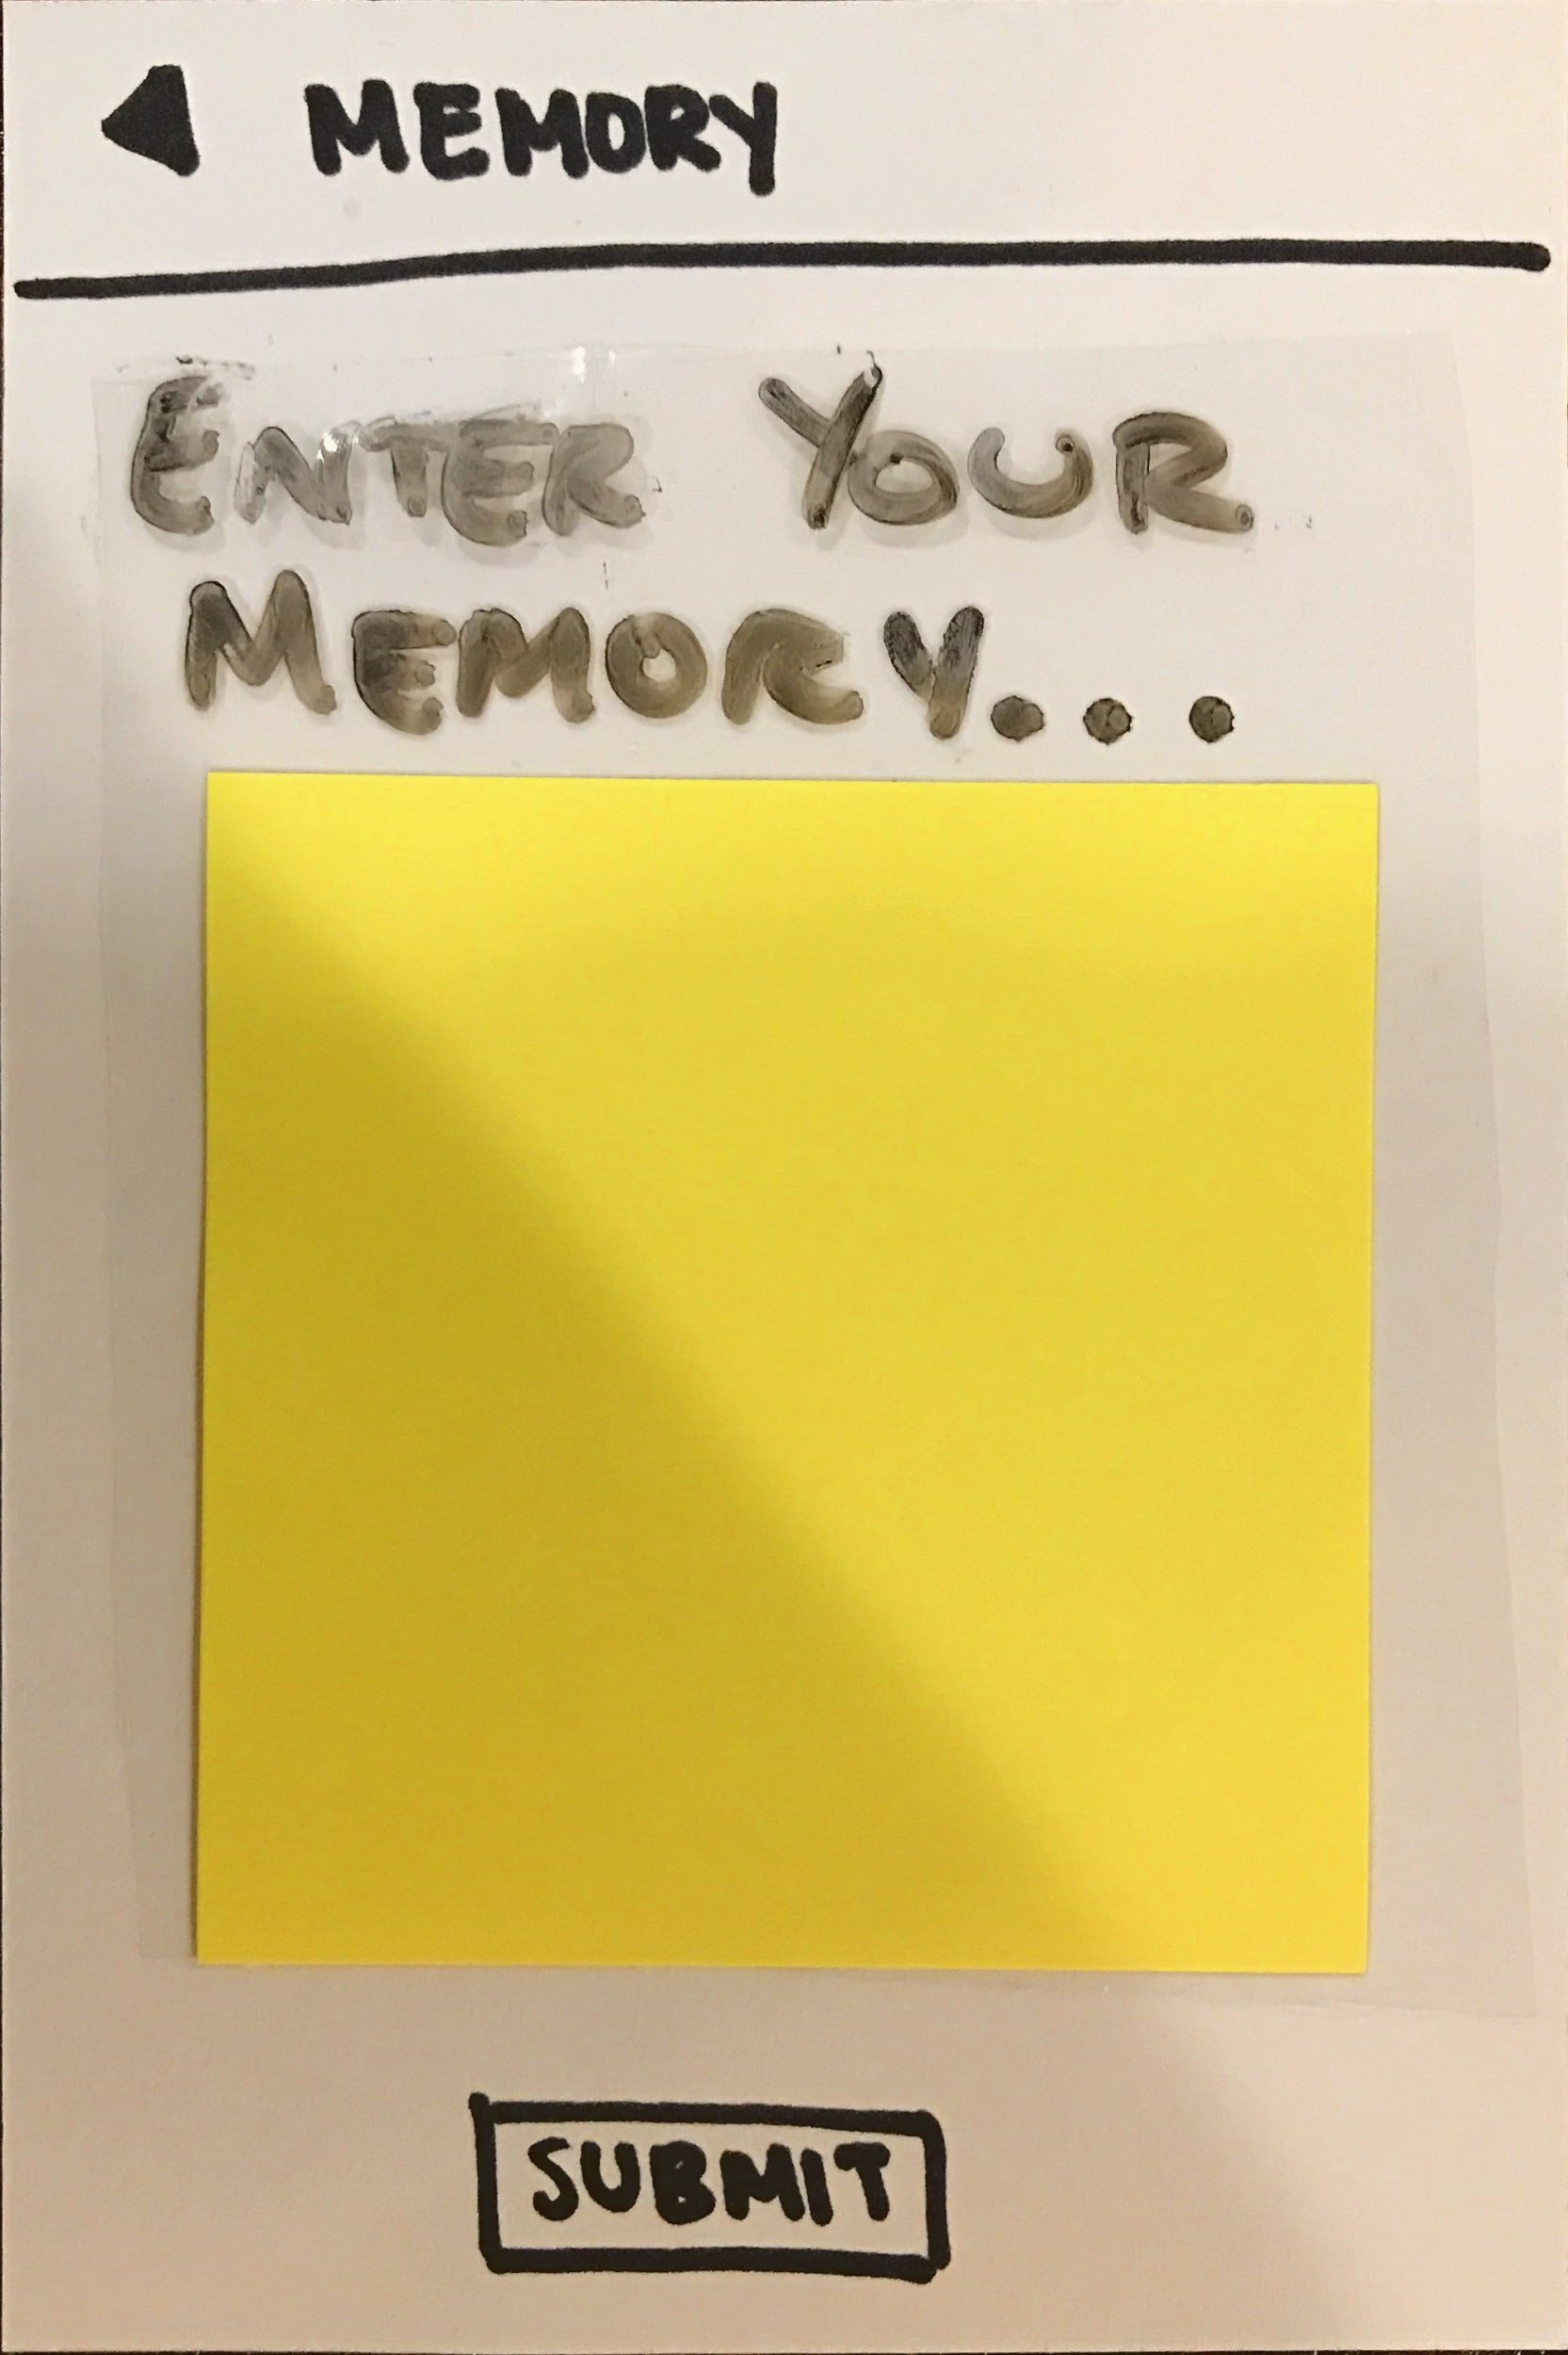 MEMORY
ENTER YOUR
MEMORY...
SUBMIT